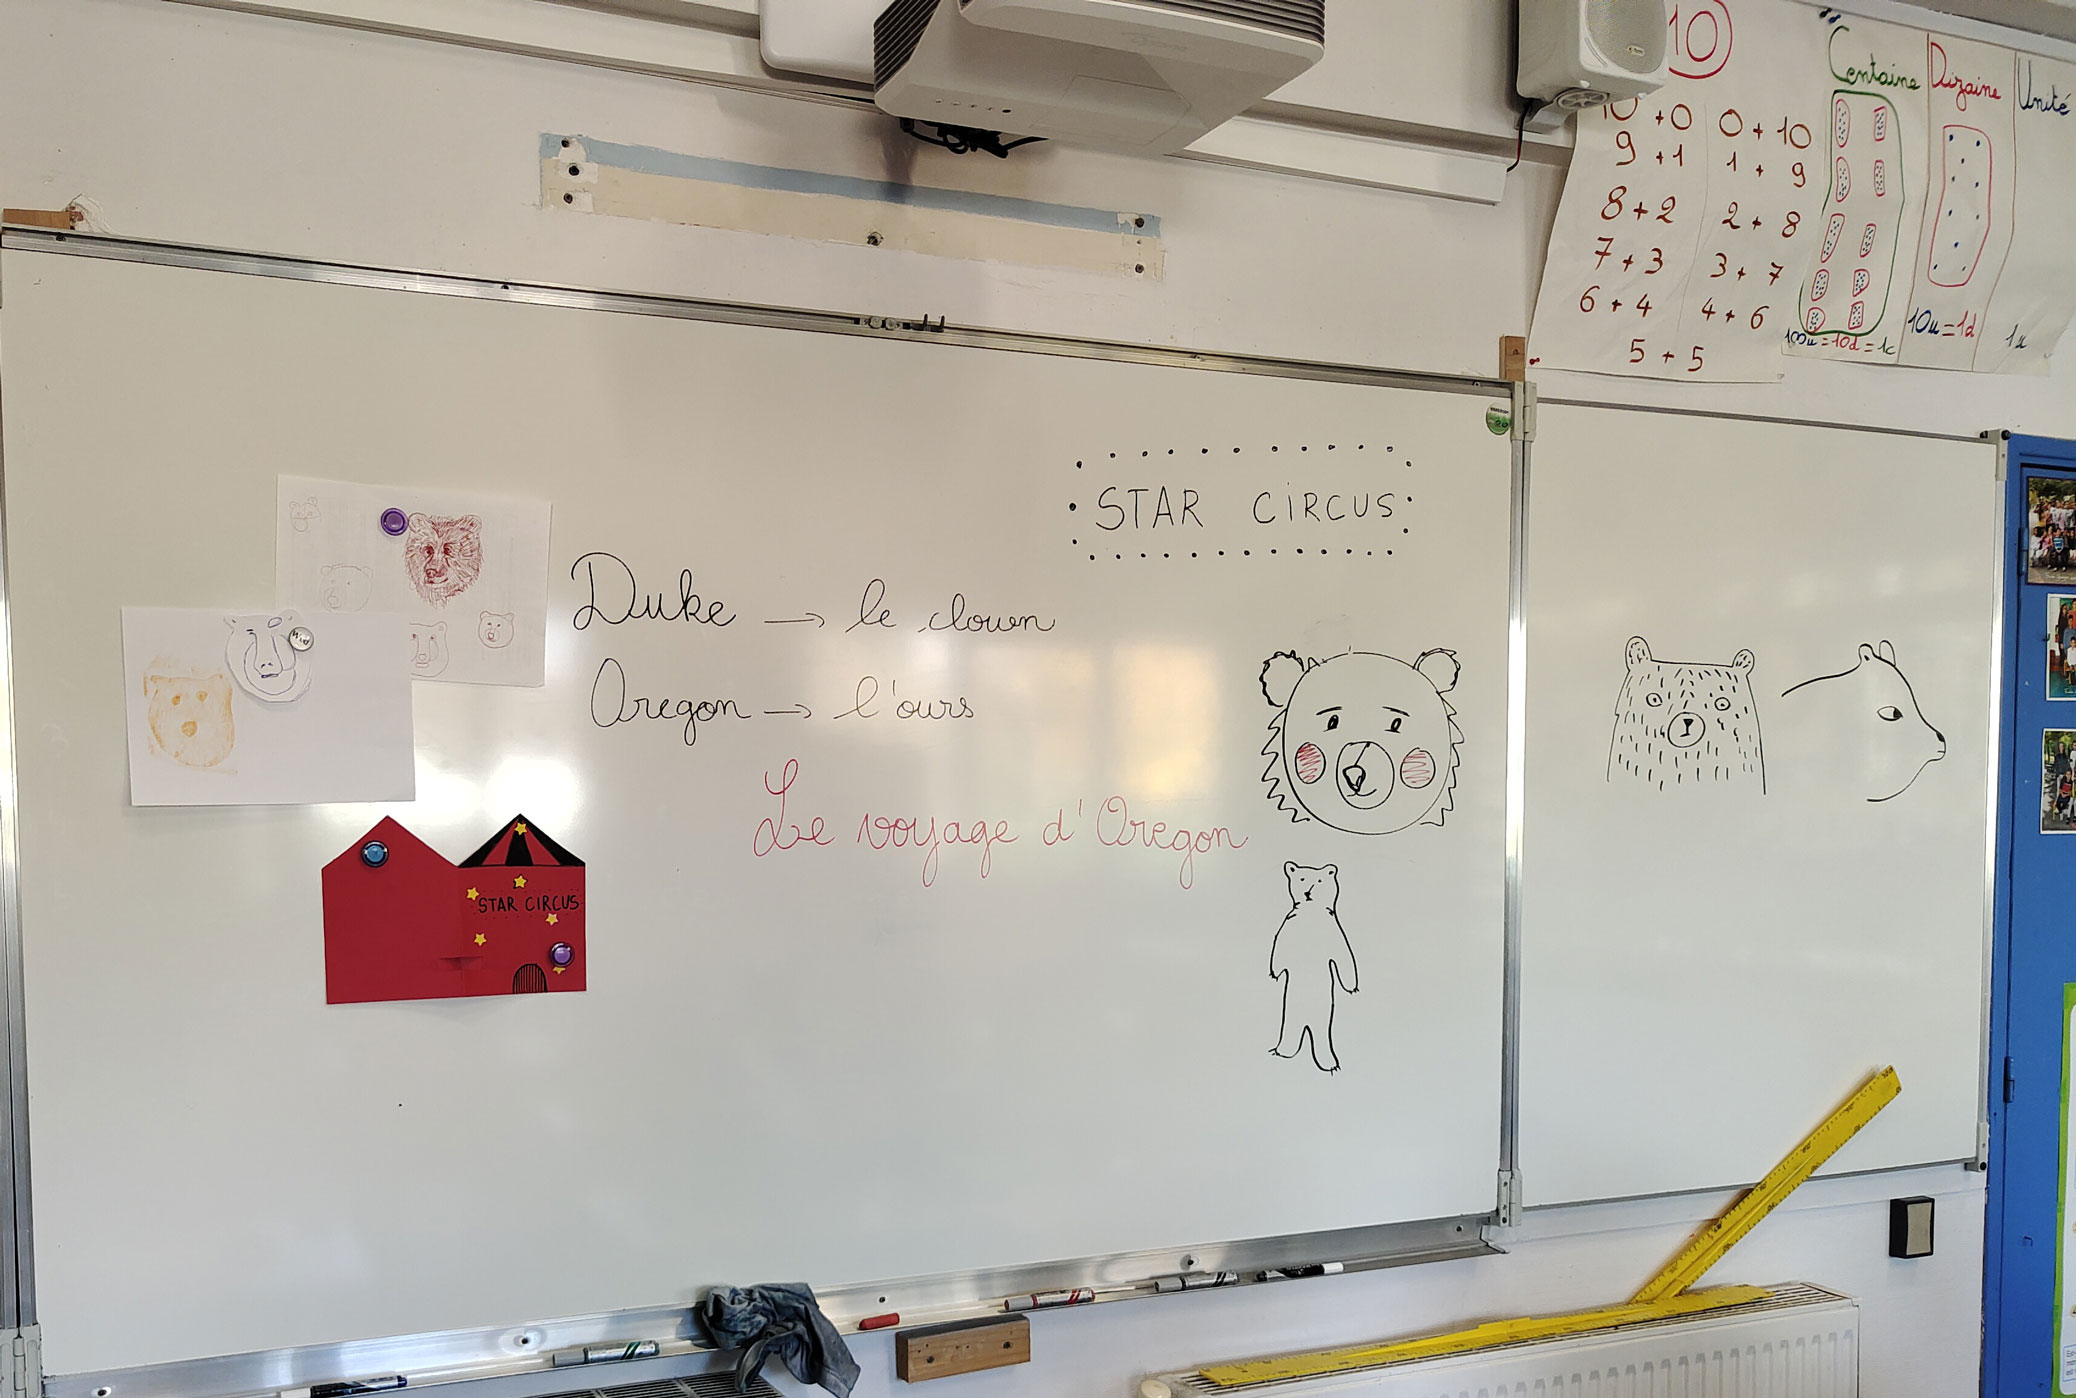 10
10 + 0 0 + 10
9 + 1 1 + 9
8 + 2 2 + 8
7 + 3 3 + 7
6 + 4 4 + 6
5 + 5
Centaine Dizaine Unité
100u = 10d = 1c 10u = 1d 1u
STAR CiRCUS
Duke → le clown
Oregon → l'ours
Le voyage d'Oregon
STAR CIRCUS